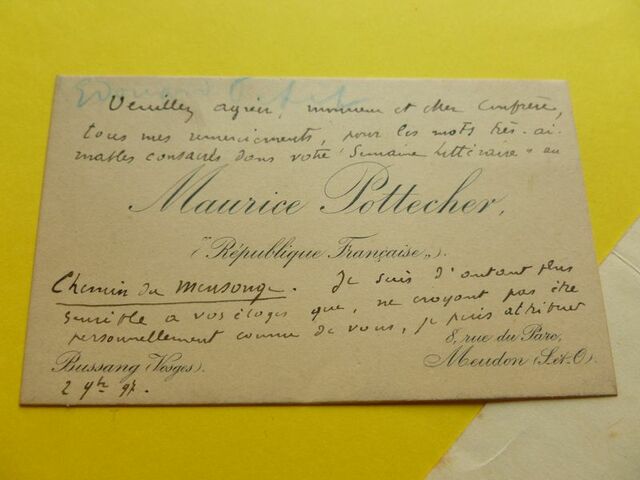 Edouard
Veuillez agréer, monsieur et cher Confrère,
tous mes remerciements, pour les mots très-ai-
mables consacrés dans votre "Semaine littéraire" au
Maurice Pottecher,
("République Française").
Chemin du Mensonge. Je suis d'autant plus
sensible à vos éloges que, ne croyant pas être
personnellement connu de vous, je puis attribuer
8, rue du Parc,
Bussang (Vosges). Meudon (S.-et-O.)
2 9bre 97.